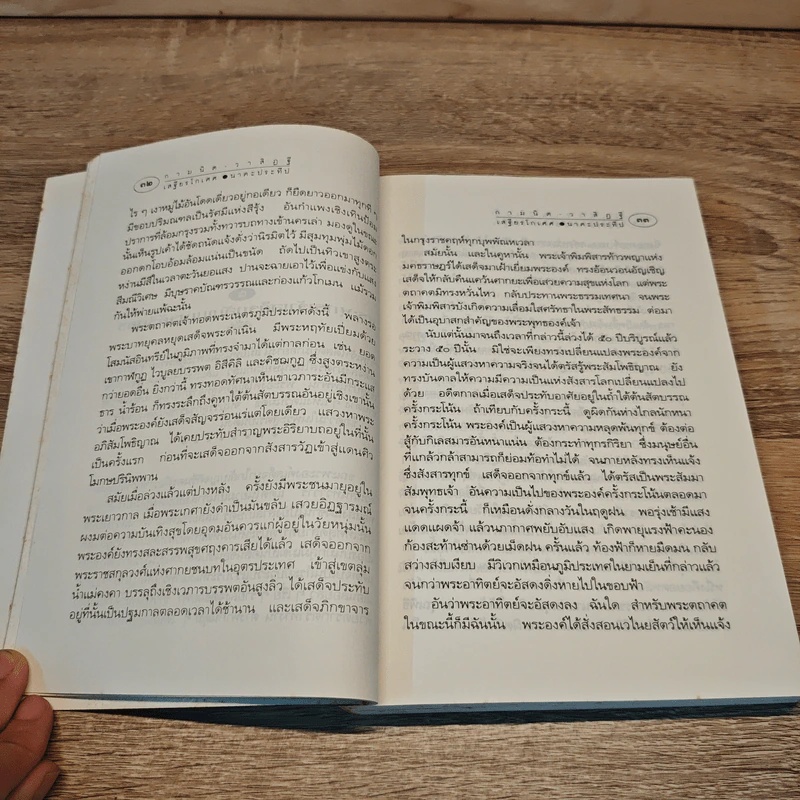 ๓๒
กามนิต-วาสิฏฐี
เสฐียรโกเศศ ● นาคะประทีป
ไร ๆ เงาหมู่ไม้อันโดดเดี่ยวอยู่กอเดียว ก็ยืดยาวออกมาทุกที
มีขอบปริมณฑลเป็นรัศมีแห่งสีรุ้ง อันกำแพงเชิงเทินป้อม
ปราการที่ล้อมกรุงรวมทั้งทวารบถทางเข้านครเล่า มองดูในขณะ
นั้นเห็นรูปเค้าได้ชัดถนัดแจ้งดั่งว่านิรมิตไว้ มีสุมทุมพุ่มไม้ดอก
ออกดกโอบอ้อมล้อมแน่นเป็นขนัด ถัดไปเป็นทิวเขาสูงตระ
หง่านมีสีในเวลาตะวันยอแสง ปานจะฉายเอาไว้เพื่อแข่งกับแสง
สีมณีวิเศษ มีบุษราคบัณฑรวรรณและก่องแก้วโกเมน แม้รวม
กันให้พ่ายแพ้ฉะนั้น
พระตถาคตเจ้าทอดพระเนตรภูมิประเทศดั่งนี้ พลางรอ
พระบาทยุคลหยุดเสด็จพระดำเนิน มีพระหฤทัยเปี่ยมด้วย
โสมนัสอินทรีย์ในภูมิภาพที่ทรงจำมาได้แต่กาลก่อน เช่น ยอด
เขากาฬกูฏ ไวบูลยบรรพต อิสิคิลิ และคิชฌกูฏ ซึ่งสูงตระหง่าน
กว่ายอดอื่น ยิ่งกว่านี้ ทรงทอดทัศนาเห็นเขาเวภาระอันมีกระแส
ธาร น้ำร้อน ก็ทรงระลึกถึงคูหาใต้ต้นสัตบรรณอันอยู่เชิงเขานั้น
ว่าเมื่อพระองค์ยังเสด็จสัญจรร่อนเร่แต่โดยเดียว แสวงหาพระ
อภิสัมโพธิญาณ ได้เคยประทับสำราญพระอิริยาบถอยู่ในที่นั้น
เป็นครั้งแรก ก่อนที่จะเสด็จออกจากสังสารวัฏเข้าสู่แดนศิว
โมกษปรินิพพาน
สมัยเมื่อล่วงแล้วแต่ปางหลัง ครั้งยังมีพระชนมายุอยู่ใน
พระเยาวกาล เมื่อพระเกศายังดำเป็นมันขลับ เสวยอิฏฐารมณ์
ผงมต่อความบันเทิงสุขโดยอุดมอันควรแก่ผู้อยู่ในวัยหนุ่มนั้น
พระองค์ยังทรงสละสรรพสุขศฤงคารเสียได้แล้ว เสด็จออกจาก
พระราชสกุลวงศ์แห่งศากยชนบทในอุตรประเทศ เข้าสู่เขตลุ่ม
น้ำแม่คงคา บรรลุถึงเชิงเวภารบรรพตอันสูงลิ่ว ได้เสด็จประทับ
อยู่ที่นั้นเป็นปฐมกาลตลอดเวลาได้ช้านาน และเสด็จภิกขาจาร
กามนิต-วาสิฏฐี
เสฐียรโกเศศ ● นาคะประทีป
๓๓
ในกรุงราชคฤห์ทุกบุพพัณหเวลา
สมัยนั้น และในคูหานั้น พระเจ้าพิมพิสารท้าวพญาแห่ง
มคธราษฎร์ได้เสด็จมาเฝ้าเยี่ยมพระองค์ ทรงอ้อนวอนอัญเชิญ
เสด็จให้กลับคืนแคว้นศากยะเพื่อเสวยความสุขแห่งโลก แต่พระ
ตถาคตมิทรงหวั่นไหว กลับประทานพระธรรมเทศนา จนพระ
เจ้าพิมพิสารบังเกิดความเลื่อมใสศรัทธาในพระสัทธรรม ต่อมา
ได้เป็นอุบาสกสำคัญของพระพุทธองค์เจ้า
นับแต่นั้นมาจนถึงเวลาที่กล่าวนี้ล่วงได้ ๕๐ ปีบริบูรณ์แล้ว
ระวาง ๕๐ ปีนั้น มิใช่จะเพียงทรงเปลี่ยนแปลงพระองค์จาก
ความเป็นผู้แสวงหาความจริงจนได้ตรัสรู้พระสัมโพธิญาณ ยัง
ทรงบันดาลให้ความมีความเป็นแห่งสังสารโลกเปลี่ยนแปลงไป
ด้วย อดีตกาลเมื่อเสด็จประทับอาศัยอยู่ในถ้ำใต้ต้นสัตบรรณ
ครั้งกระโน้น ถ้าเทียบกับครั้งกระนี้ ดูผิดกันห่างไกลนักหนา
ครั้งกระโน้น พระองค์เป็นผู้แสวงหาความหลุดพ้นทุกข์ ต้องต่อ
สู้กับกิเลสมารอันหนาแน่น ต้องกระทำทุกรกิริยา ซึ่งมนุษย์อื่น
ที่แกล้วกล้าสามารถก็ย่อมท้อทำไม่ได้ จนภายหลังทรงเห็นแจ้ง
ซึ่งสังสารทุกข์ เสด็จออกจากทุกข์แล้ว ได้ตรัสเป็นพระสัมมา
สัมพุทธเจ้า อันความเป็นไปของพระองค์ครั้งกระโน้นตลอดมา
จนครั้งกระนี้ ก็เหมือนดั่งกลางวันในฤดูฝน พอรุ่งเช้ามีแสง
แดดแผดจ้า แล้วนภากาศพยับอับแสง เกิดพายุแรงฟ้าคะนอง
ก้องสะท้านซ่านด้วยเม็ดฝน ครั้นแล้ว ท้องฟ้าก็หายมืดมน กลับ
สว่างสงบเงียบ มีวิเวกเหมือนภูมิประเทศในยามเย็นที่กล่าวแล้ว
จนกว่าพระอาทิตย์จะอัสดงดิ่งหายไปในขอบฟ้า
อันว่าพระอาทิตย์จะอัสดงลง ฉันใด สำหรับพระตถาคต
ในขณะนี้ก็มีฉันนั้น พระองค์ได้สั่งสอนเวไนยสัตว์ให้เห็นแจ้ง